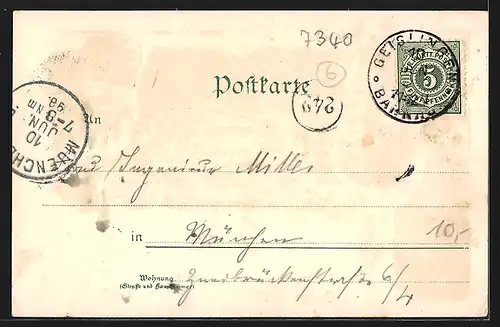 7340
6
GEISLINGEN
BAHNHOF
5
Postkarte
249
MUENCHEN
10 JUN. 98
7-8 Nm
An
Ingenieur Miller
10,-
in München
Wohnung
(Straße und Hausnummer)
Zweibrückenstraße 6/4